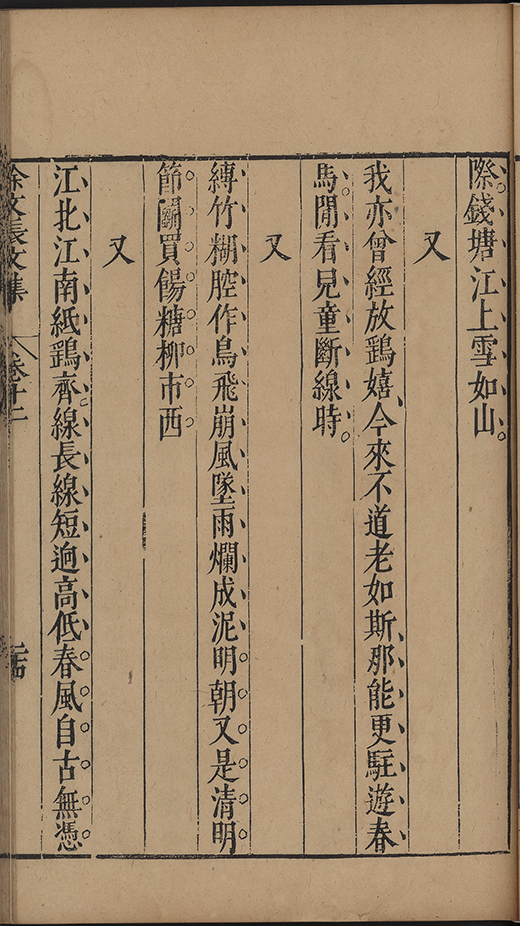 際錢塘江上雪如山
又
我亦曾經放鷂嬉今來不道老如斯那能更駐遊春
馬閒看兒童斷線時
又
縳竹糊腔作鳥飛崩風墜雨爛成泥明朝又是清明
節鬭買餳糖柳市西
又
江北江南紙鷂齊線長線短迥高低春風自古無憑
徐文長文集 卷十二 二十四